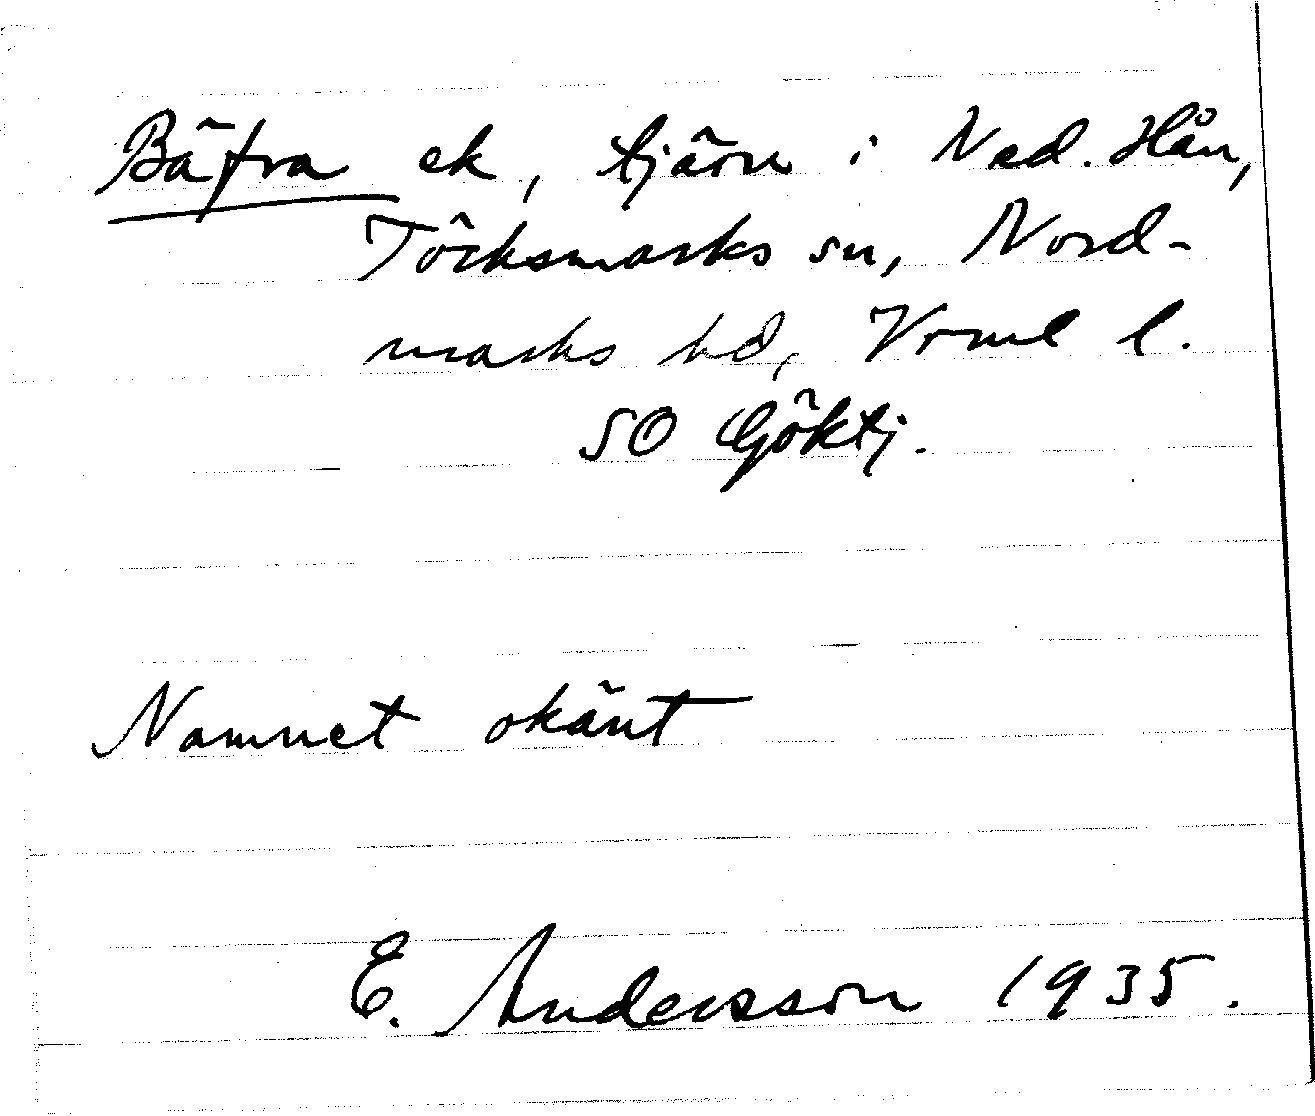 Bäfra ek, tjärn i Ned. Hån,
Töcksmarks sn, Nord-
marks hd, Vrml l.
SO Göktj.
Namnet okänt
E. Andersson 1935.